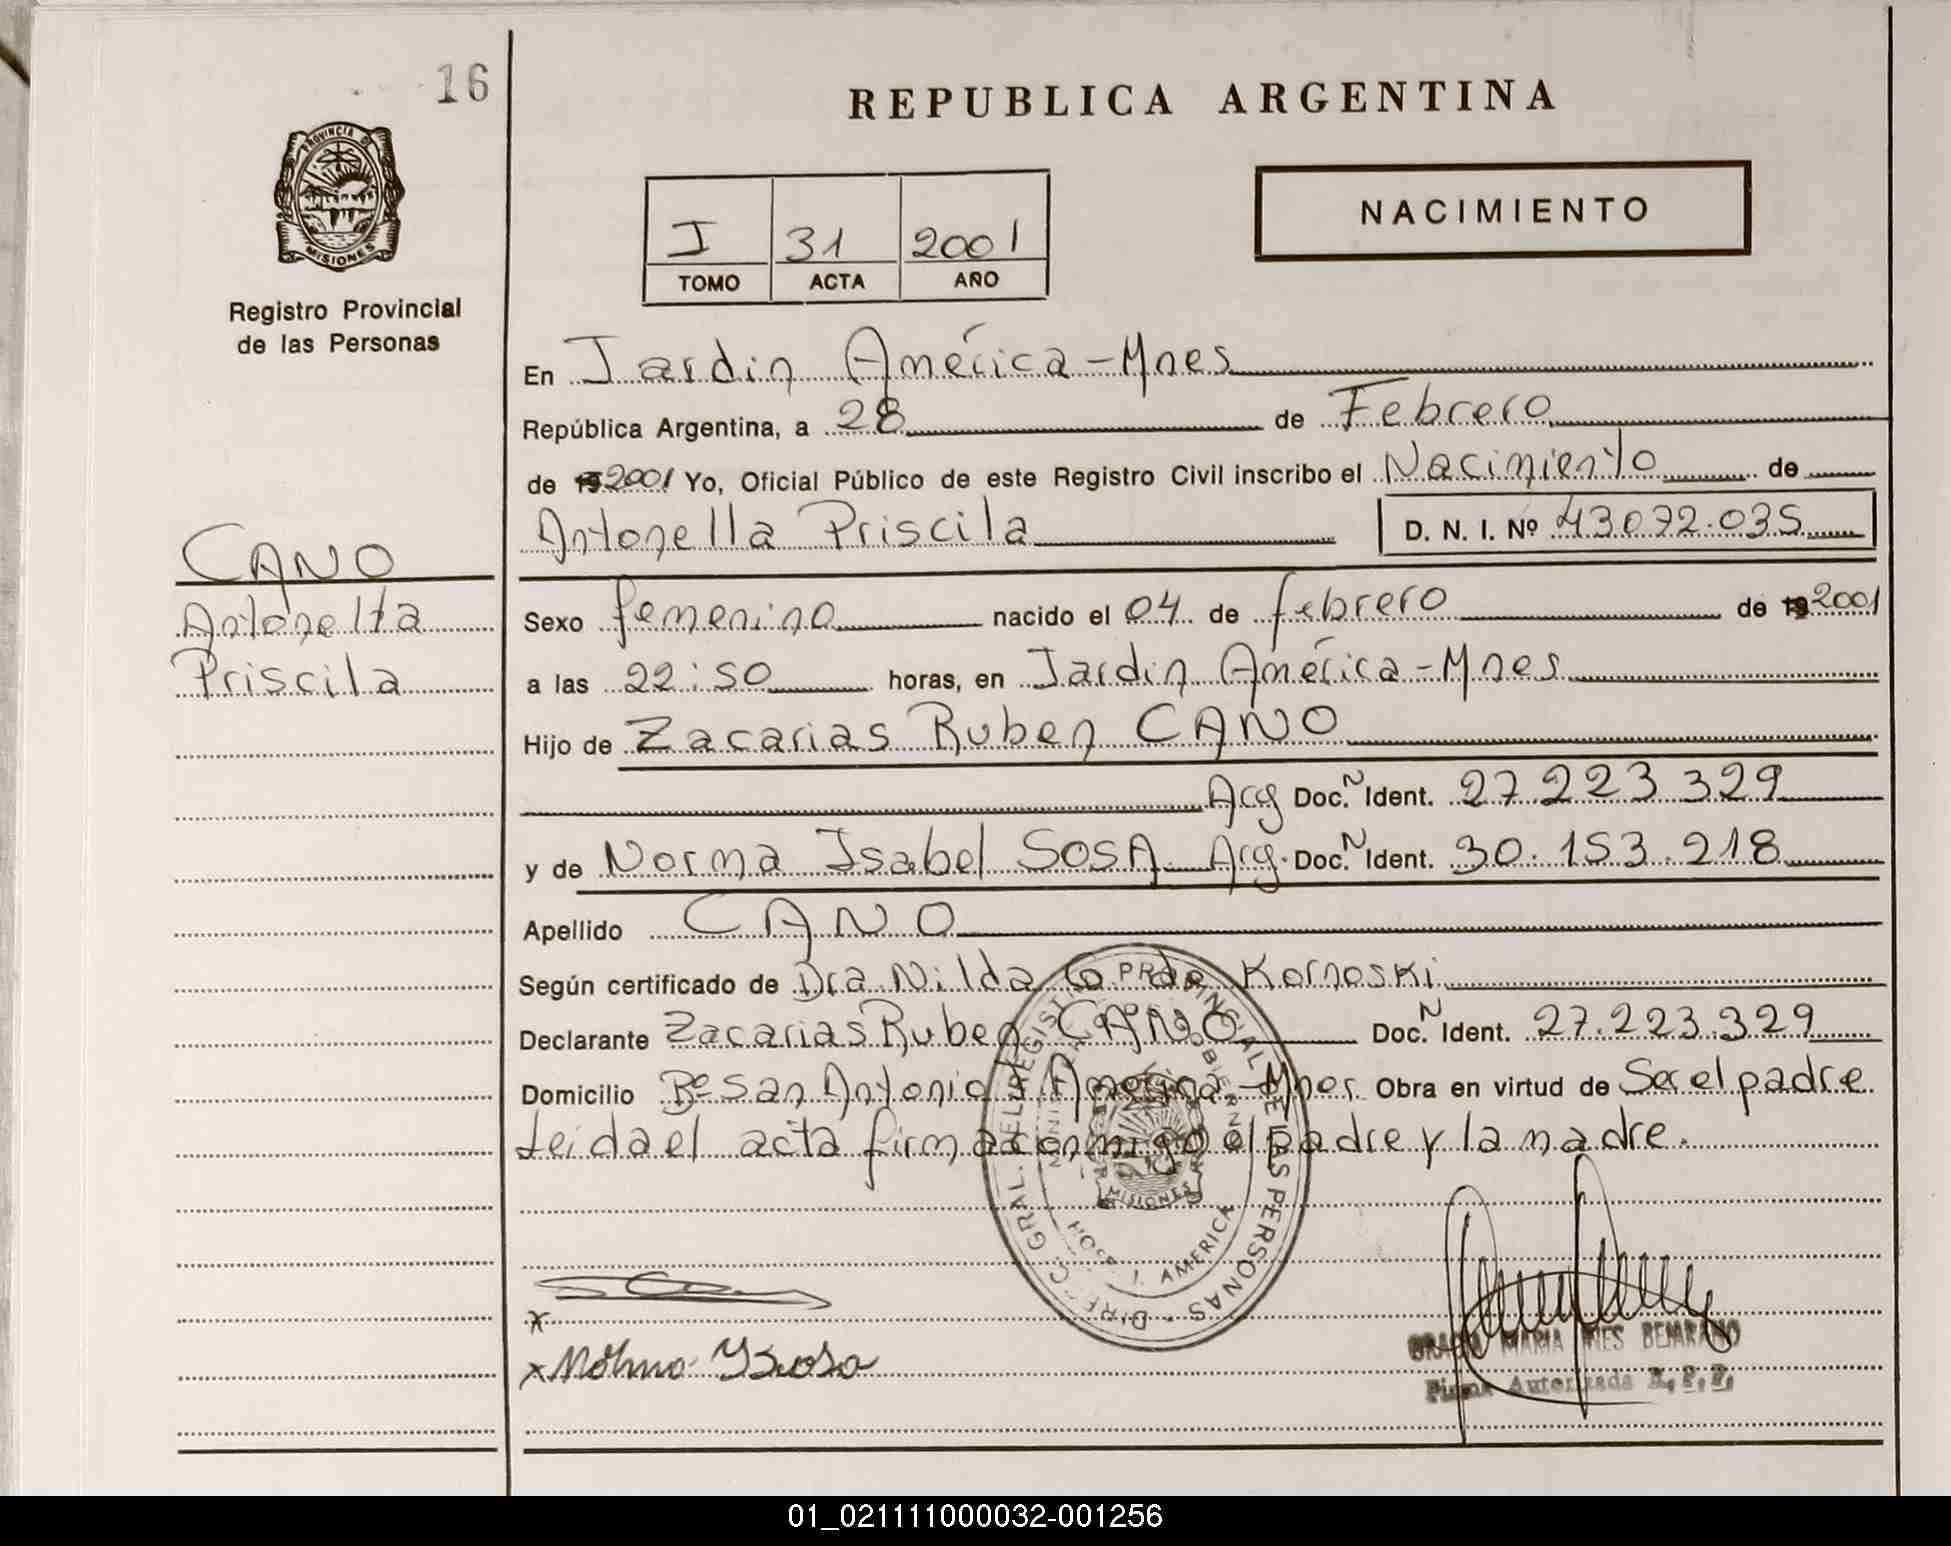 16
PROVINCIA DE
MISIONES
Registro Provincial
de las Personas
REPUBLICA ARGENTINA
I 31 2001
TOMO ACTA AÑO
NACIMIENTO
En Jardin América-Mnes
República Argentina, a 28 de Febrero
de 19 2001 Yo, Oficial Público de este Registro Civil inscribo el Nacimiento de
Antonella Priscila D. N. I. Nº 43.072.035
CANO
Antonella
Priscila
Sexo femenino nacido el 04 de febrero de 19 2001
a las 22:50 horas, en Jardin América-Mnes
Hijo de Zacarias Ruben CANO
Arg Doc. N Ident. 27.223.329
y de Norma Isabel SOSA Arg. Doc. N Ident. 30.153.218
Apellido CANO
Según certificado de Dra Nilda G de Kornoski
Declarante Zacarias Ruben CANO Doc. N Ident. 27.223.329
Domicilio Bº San Antonio J América-Mnes Obra en virtud de Ser el padre
Leida el acta firma conmigo el padre y la madre.
DIREC. GRAL. DEL REGISTRO PROVINCIAL DE LAS PERSONAS
MISIONES
J. AMERICA
x
x Norma Y Sosa
MARIA INES BEJARANO
Firma Autorizada R.P.P.
01_021111000032-001256